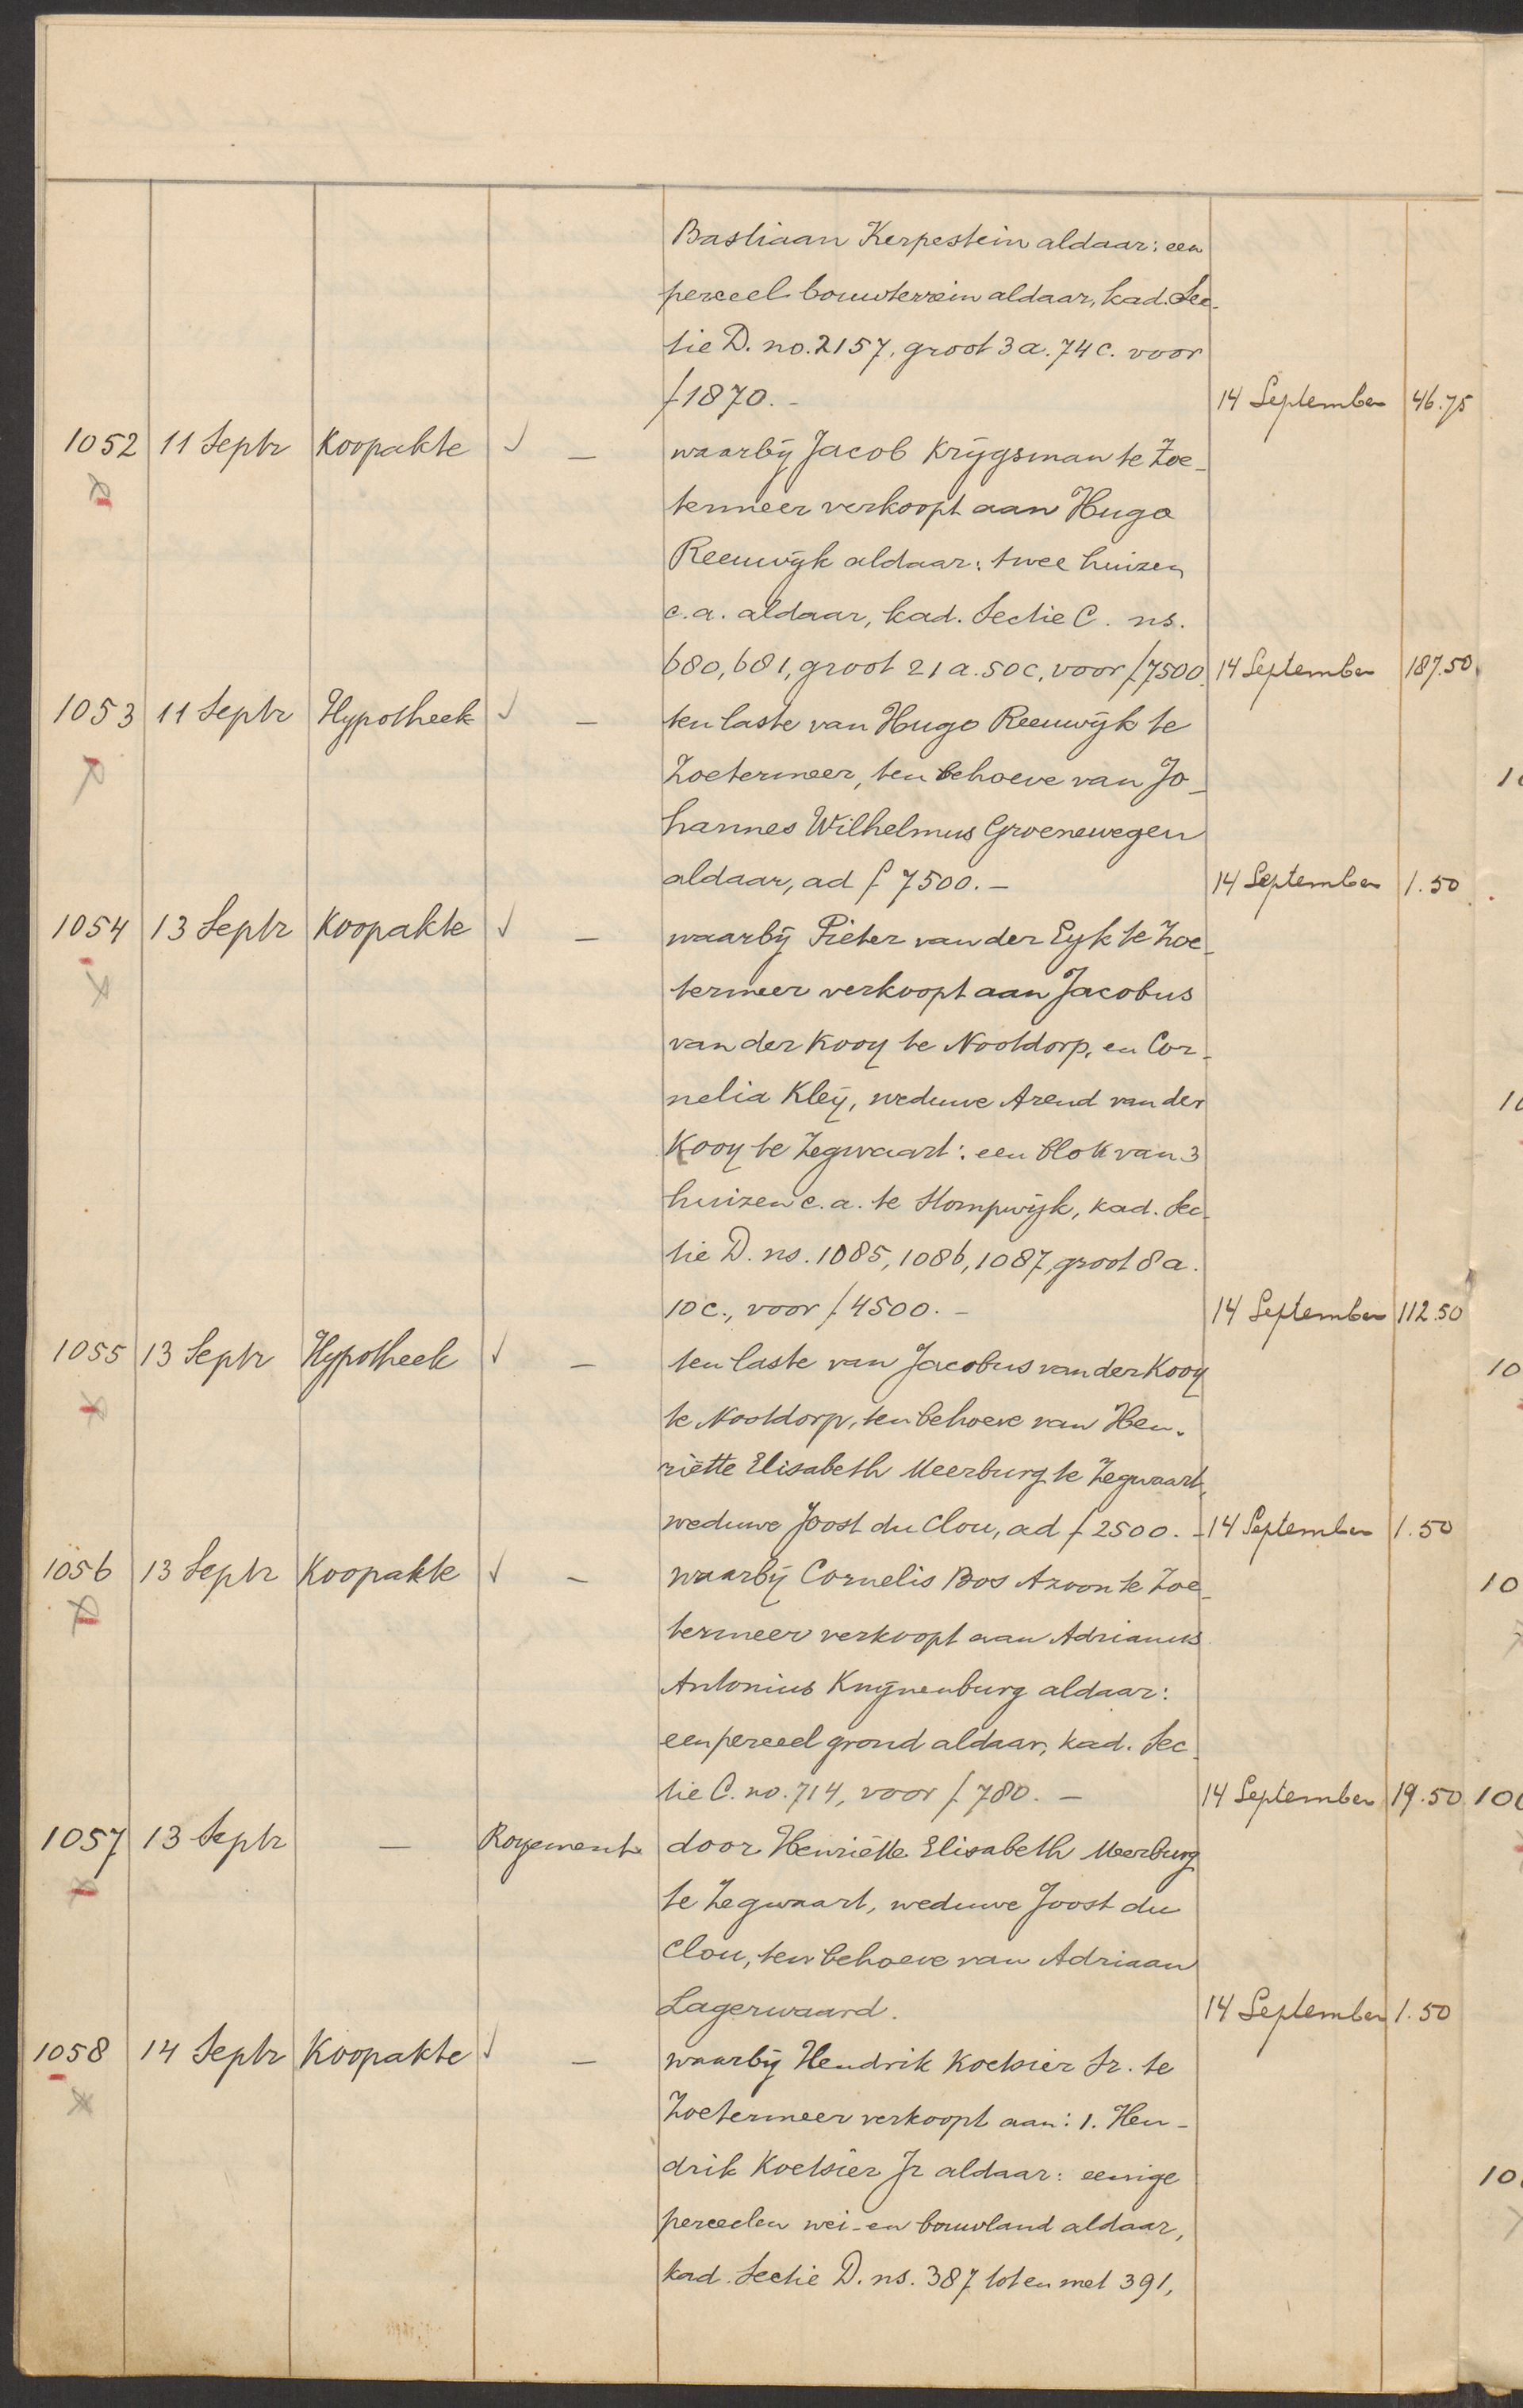 Bastiaan Kerpestein aldaar: een
perceel bouwterrein aldaar, kad. Sec-
tie D. no. 2157, groot 3 a. 74 c. voor
f 1870.- 14 September 46.75
1052 11 Septr Koopakte √ — waarbij Jacob Krijgsman te Zoe-
termeer verkoopt aan Hugo
Reeuwijk aldaar: twee huizen
c.a. aldaar, kad. Sectie C. ns.
680, 681, groot 21 a. 50 c, voor f 7500. 14 September 187.50
1053 11 Septr Hypotheek √ — ten laste van Hugo Reeuwijk te
Zoetermeer, ten behoeve van Jo-
hannes Wilhelmus Groenewegen
aldaar, ad f 7500.- 14 September 1.50
1054 13 Septr Koopakte √ — waarbij Pieter van der Eyk te Zoe-
termeer verkoopt aan Jacobus
van der Kooy te Nootdorp, en Cor-
nelia Kleij, weduwe Arend van der
Kooy te Zegwaart: een blok van 3
huizen c.a. te Stompwijk, kad. Sec-
tie D. ns. 1085, 1086, 1087, groot 8 a.
10 c., voor f 4500.- 14 September 112.50
1055 13 Septr Hypotheek √ — ten laste van Jacobus van der Kooy
te Nootdorp, ten behoeve van Hen-
riëtte Elisabeth Meerburg te Zegwaart,
weduwe Joost du Clou, ad f 2500.- 14 September 1.50
1056 13 Septr Koopakte √ — waarbij Cornelis Bos Azoon te Zoe-
termeer verkoopt aan Adrianus
Antonius Knijnenburg aldaar:
een perceel grond aldaar, kad. Sec-
tie C. no. 714, voor f 780.- 14 September 19.50
1057 13 Septr — Royement door Henriëtte Elisabeth Meerburg
te Zegwaart, weduwe Joost du
Clou, ten behoeve van Adriaan
Lagerwaard. 14 September 1.50
1058 14 Septr Koopakte √ — waarbij Hendrik Koetsier Sr. te
Zoetermeer verkoopt aan: 1. Hen-
drik Koetsier Jr aldaar: eenige
perceelen wei- en bouwland aldaar,
kad. Sectie D. ns. 387 tot en met 391,